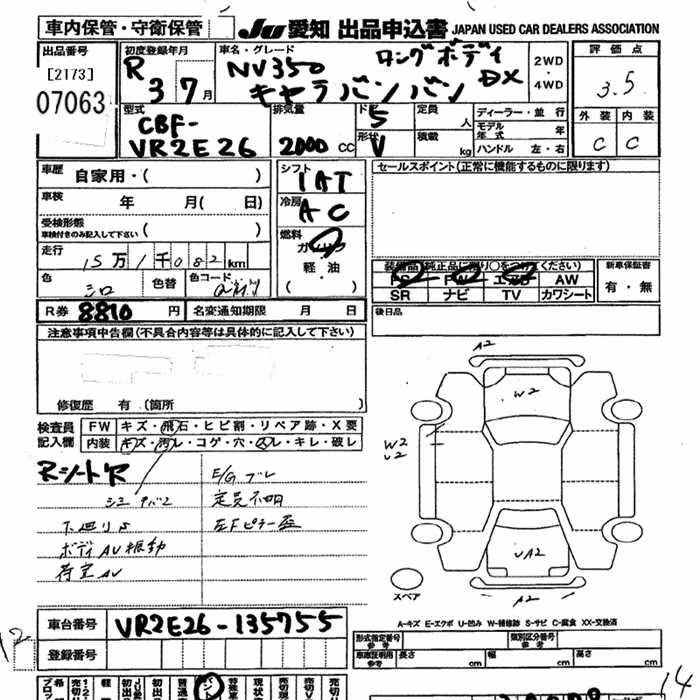 車内保管・守衛保管
JU 愛知 出品申込書 JAPAN USED CAR DEALERS ASSOCIATION
出品番号
[2173]
07063
初度登録年月
R 3 7月
車名・グレード
ロングボディ
NV350 DX
キャラバンバン
2WD
・
4WD
評価点
3.5
外装 内装
C C
型式
CBF-
VR2E26
排気量
2000 CC
ドア
5
形状
V
定員 人
積載 kg
ディーラー・並行
モデル年式 年
ハンドル 左・右
車歴 自家用・( )
車検 年 月( 日)
受検形態
車検付きのみ記入して下さい ( )
走行
15万1千082km
色
シロ
色替
色コード
R券 8810 円
名変通知期限 月 日
シフト
IAT
冷房
AC
燃料
ガソリン
軽・油
( )
セールスポイント(正常に機能するものに限ります)
装備品(純正品に限り○をつけてください)
PS PW エアB AW
SR ナビ TV カワシート
新車保証書
有・無
後日品
注意事項申告欄(不具合内容等は具体的に記入して下さい)
修復歴 有 (箇所
検査員記入欄
FW キズ・飛石・ヒビ割・リペア跡・X要
内装 キズ・汚レ・コゲ・穴・スレ・キレ・破レ
Rシートヤ
E/Gブレ
定員不明
下廻りS
左Fピラー歪
ボディAV振動
荷室AV
A2
W2
W2
U2
UA2
A2
スペア
A-キズ E-エクボ U-凹み W-補修跡 S-サビ C-腐食 XX-交換済
車台番号 VR2E26-135755
登録番号
形式指定番号
参考
類別区分番号
参考
車庫証明用
参考
長さ cm
幅 cm
高さ cm
12
14